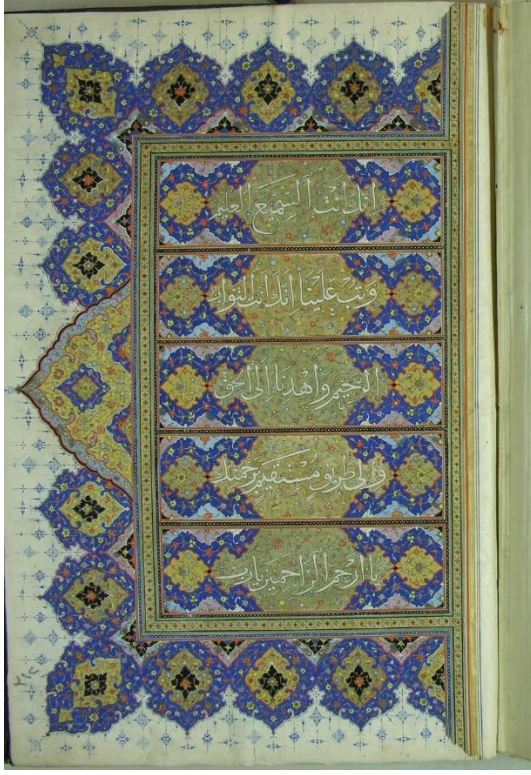 انك انت السميع العليم
وتب علينا انك انت التواب
الرحيم واهدنا الى الحق
والى طريق مستقيم برحمتك
يا ارحم الراحمين يارب